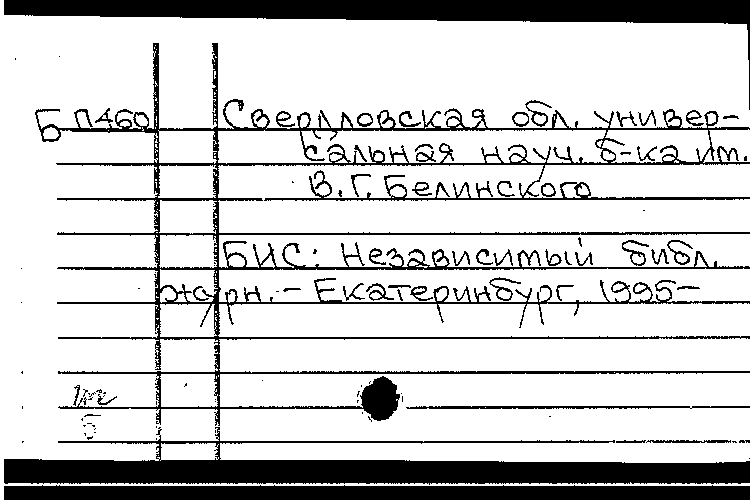 Б П460 Свердловская обл. универ-
сальная науч. б-ка им.
В.Г. Белинского
БИС: Независимый библ.
журн. – Екатеринбург, 1995–
б